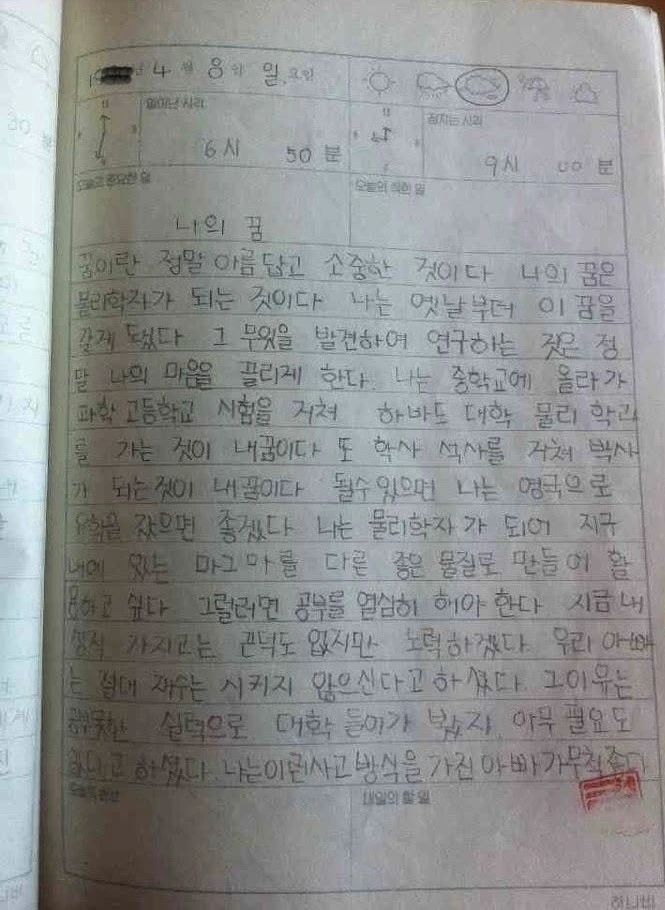 4 월 8 일 일.요일
일어난 시각
잠자는 시각
6시 50분
9시 00분
오늘의 중요한 일
오늘의 착한 일
나의 꿈
꿈이란 정말 아름답고 소중한 것이다 나의 꿈은
물리학자가 되는 것이다 나는 옛날부터 이 꿈을
갖게 됬다 그 무엇을 발견하여 연구하는 것은 정
말 나의 마음을 끌리게 한다. 나는 중학교에 올라가
과학 고등학교 시험을 거쳐 하바드 대학 물리 학과
를 가는 것이 내꿈이다 또 학사 석사를 거쳐 박사
가 되는것이 내꿈이다 될수있으면 나는 영국으로
유학을 갔으면 좋겠다 나는 물리학자가 되어 지구
내에 있는 마그마를 다른 좋은 물질로 만들어 활
용하고 싶다 그럴러면 공부를 열심히 해야 한다 지금 내
가지고는 턱도 없지만 노력하겠다. 우리 아빠
는 절대 재수는 시키지 않으신다고 하셨다. 그이유는
공부못한 실력으로 대학 들어가 봤자 아무 필요도
없다고 하셨다. 나는이런사고방식을 가진 아빠가무척좋다
오늘의 반성
내일의 할 일